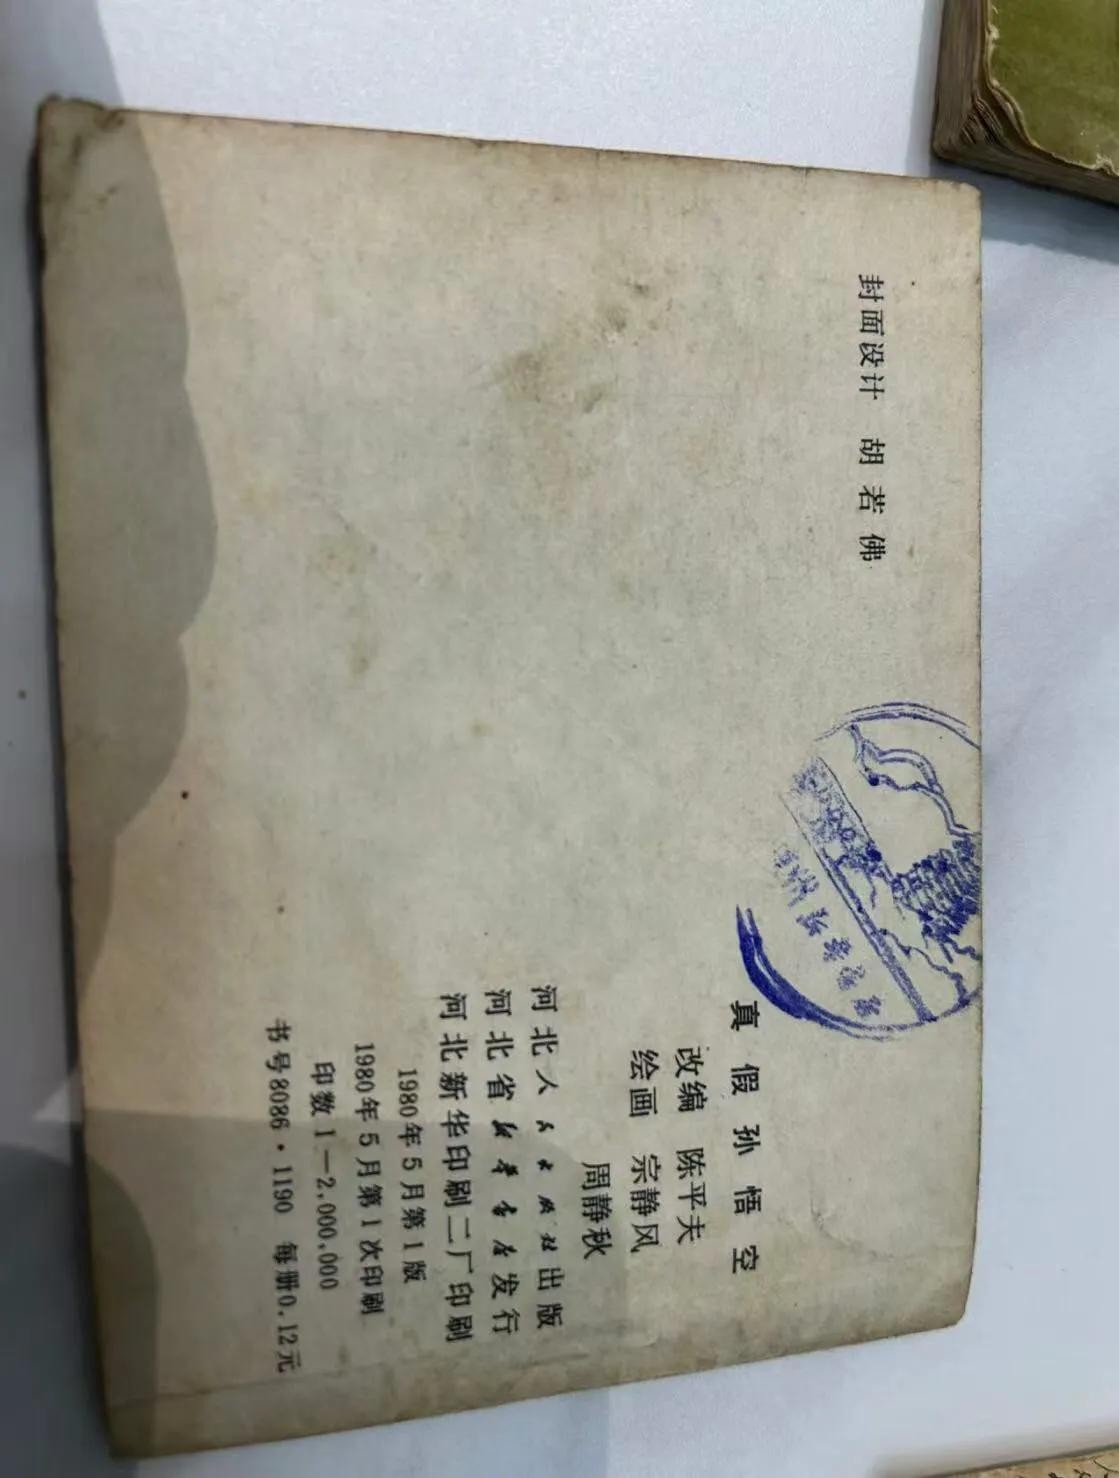 封面设计 胡若佛
真假孙悟空
改编 陈平夫
绘画 宗静风
周静秋
河北人民出版社出版
河北省新华书店发行
河北新华印刷二厂印刷
1980年5月第1版
1980年5月第1次印刷
印数1—2,000,000
书号8086·1190 每册0.12元